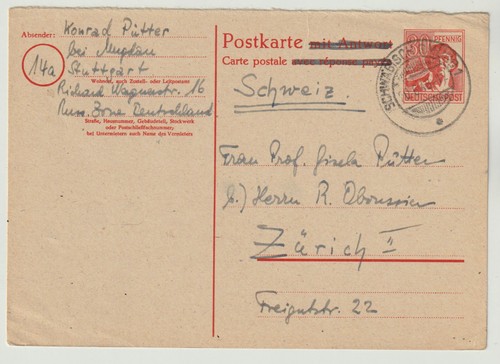 Absender: Konrad Pütter
bei Mugdan
14a
Stuttgart
Wohnort, auch Zustell- oder Leitpostamt
Richard Wagnerstr. 16
Zone Deutschland
Straße, Hausnummer, Gebäudeteil, Stockwerk
oder Postschließfachnummer;
bei Untermietern auch Name des Vermieters
Postkarte mit Antwort
Carte postale avec réponse payée
Schweiz.
PFENNIG
DEUTSCHE POST
Frau Prof. Gisela Pütter
b/ Herrn R. Oboussier
Zürich II
Freigutstr. 22